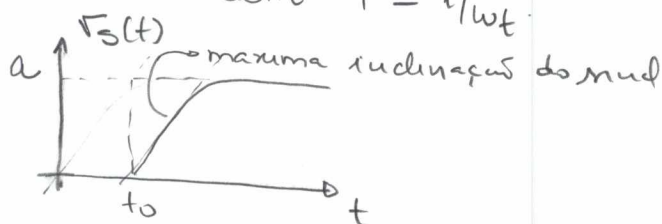 = 1/wt
Vs(t)
a
maxima inclinação do sinal
to
t